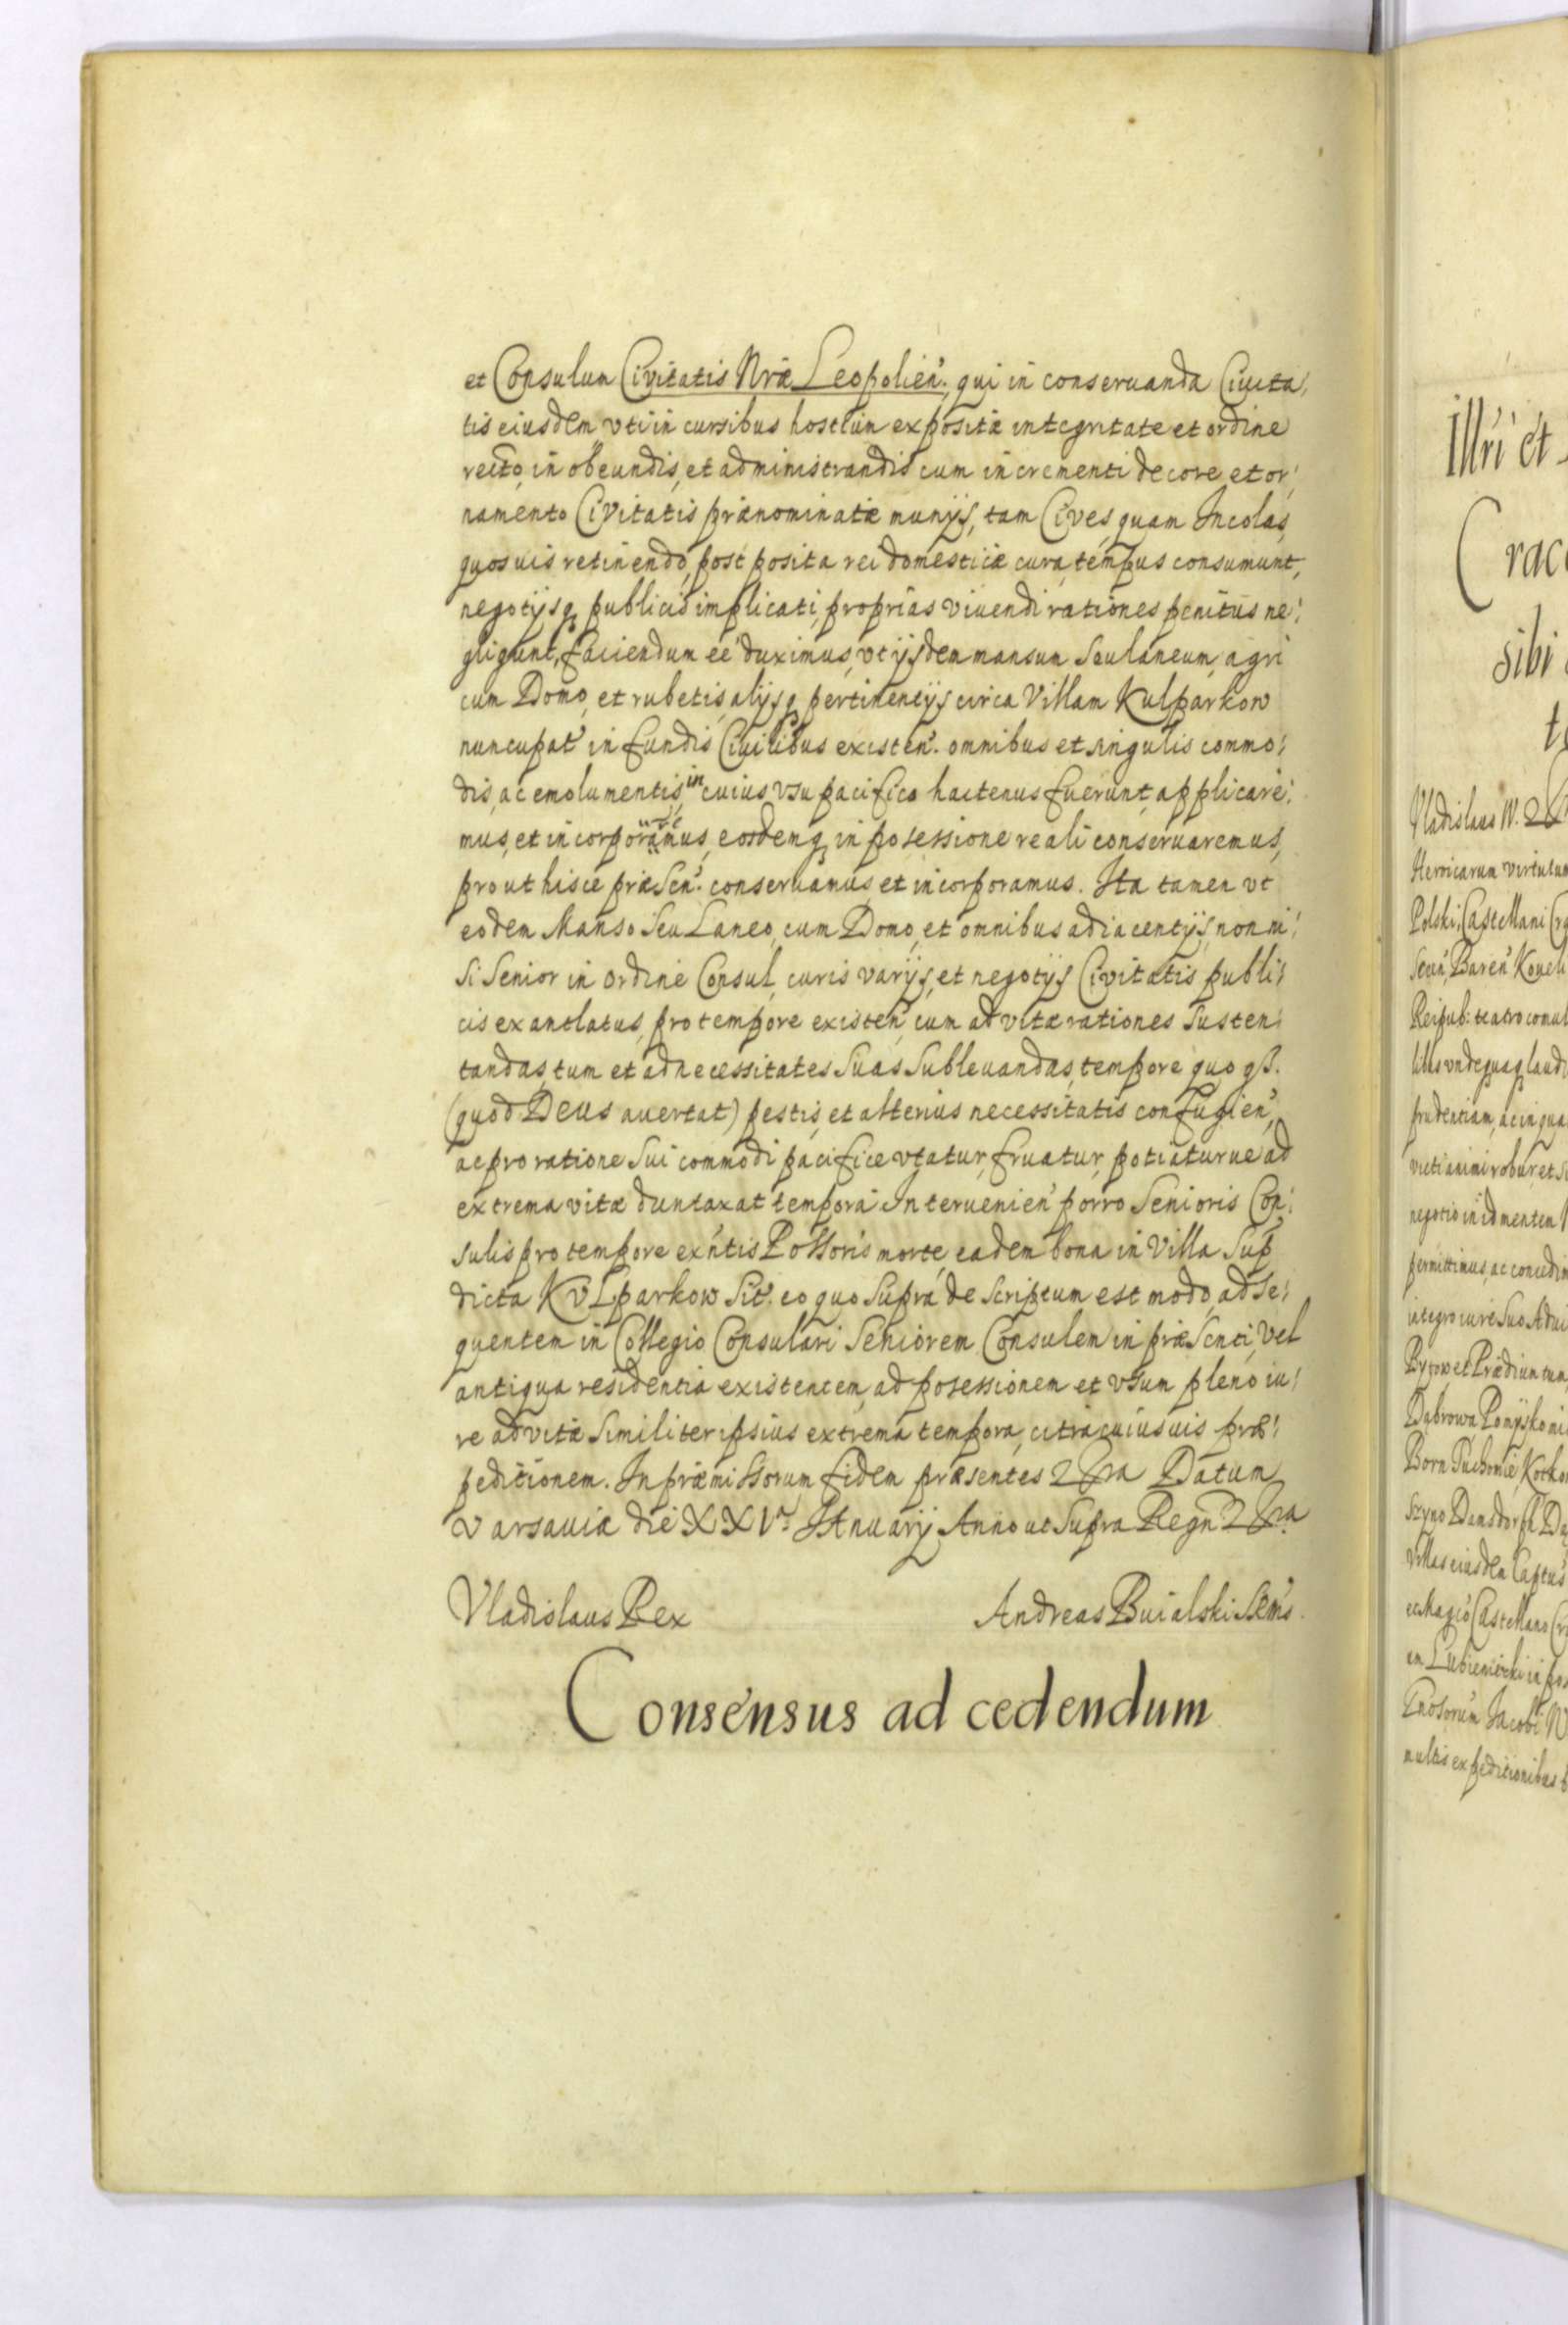 et Consulum Civitatis Nræ Leopolien̄. qui in conseruanda Ciuita:
tis eiusdem vti in cursibus hostium expositæ integritate et ordine
recto, in obeundis, et administrandis cum incrementi decore et or:
namento Civitatis prænominatæ munijs, tam Cives, quam Incolas,
quosuis retinendo, post posita rei domesticæ cura, tempus consumunt,
negotijsq publicis implicati, proprias viuendi rationes penitus ne:
gligunt, faciendum eē duximus, vt ijsdem mansum Seu laneum agri
cum Domo, et rubetis, alijsq pertinentijs circa Villam Kulparkow
nuncupat in fundis Ciuilibus existen. omnibus et singulis commo:
dis, ac emolumentis, in cuius vsu pacifico hactenus fuerunt, applicare:
mus, et incorporamus, eosdemq in posessione reali conseruaremus,
prout hisce præsen. conseruamus et incorporamus. Ita tamen vt
eodem Manso Seu Laneo, cum Domo, et omnibus adiacentijs, non ni:
si Senior in ordine Consul, curis varijs, et negotijs Civitatis publi:
cis exantlatus, pro tempore existen, cum ad vitæ rationes susten:
tandas, tum et ad necessitates Suas Subleuandas, tempore quo qß.
(quod Deus auertat) pestis, et alterius necessitatis confugien,
ac pro ratione Sui commodi pacifice vtatur, fruatur, potiaturue ad
extrema vitæ duntaxat tempora. Interuenien porro Senioris Con:
sulis pro tempore exn̄tis Possoris morte, eadem bona in Villa Sup
dicta KVLparkow Sit. eo quo Supra de Scriptum est modo, ad Se:
quentem in Collegio Consulari Seniorem Consulem in præsenti, Vel
antiqua residentia existentem, ad posessionem et vsum pleno iu:
re ad vitæ Similiter ipsius extrema tempora, citra cuiusuis præ:
peditionem. In præmissorum fidem præsentes Datum
Varsauiæ die XXV. IAnuarij Anno ut Supra Regn
Vladislaus Rex
Andreas Buialski Sem̄s.
Consensus ad cedendum
Illri et
Crac
sibi
Vladislaus IV.
Heroicarum virtutum
Polski, Castellani
Reipub: teatro
prudentiam, ac in
negotio in id mentem
permittimus, ac
integro iure Suo
Bytow et Prædium tum
Dąbrowa
Villas eiusdem
multis expeditionibus